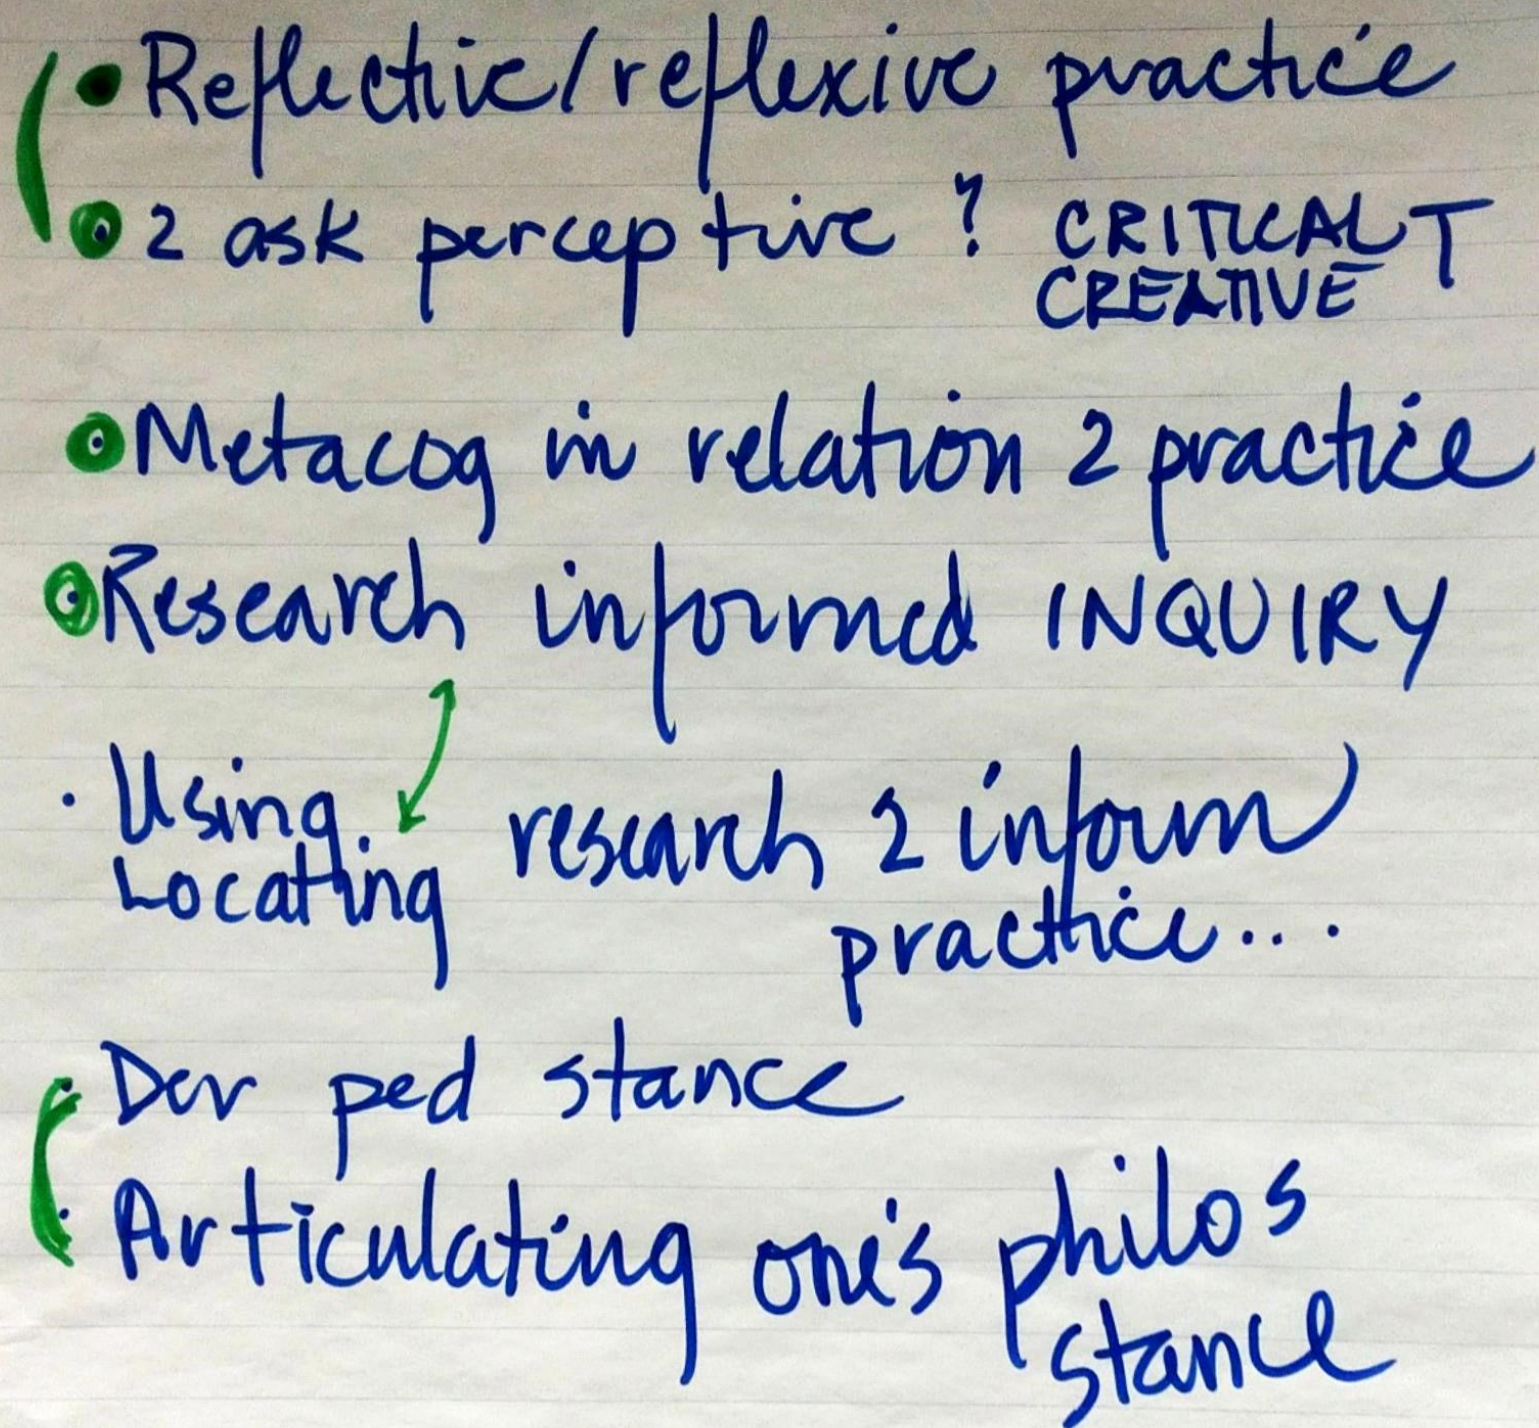 • Reflective/reflexive practice
• 2 ask perceptive ? CRITICAL T
CREATIVE
• Metacog in relation 2 practice
• Research informed INQUIRY
· Using.
Locating research 2 inform
practice....
· Dev ped stance
· Articulating one's philos
stance